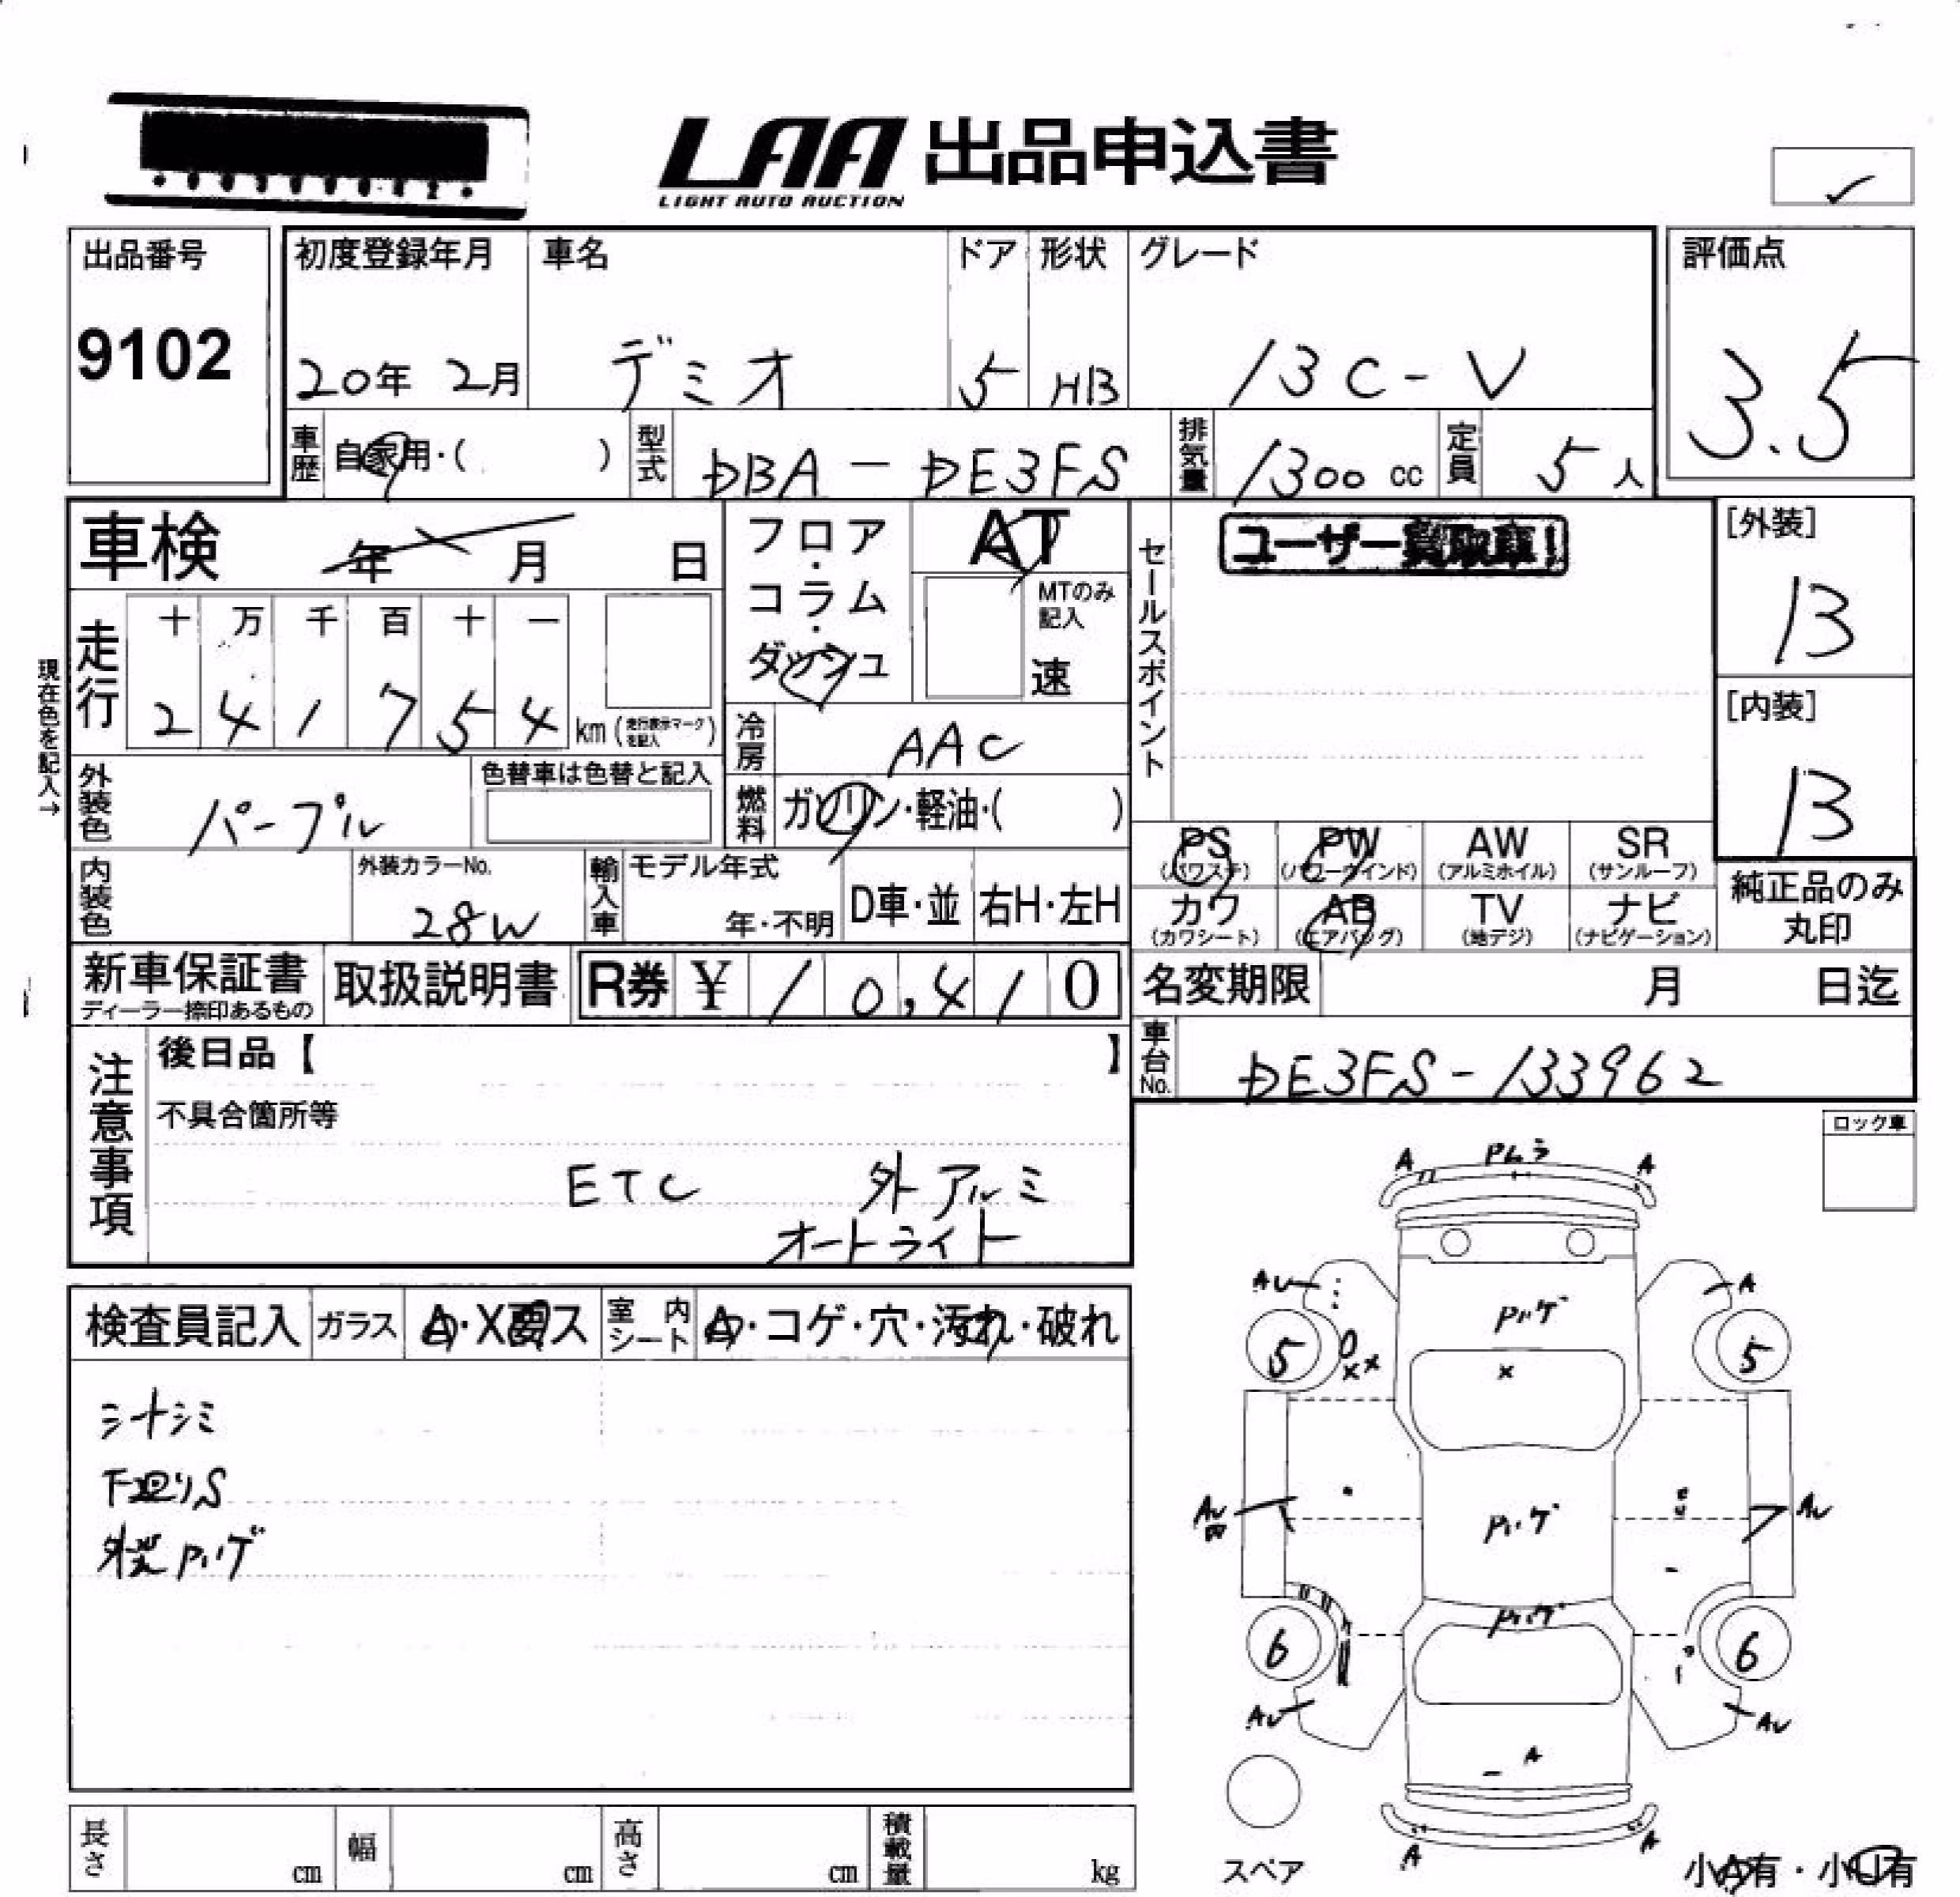 LAA 出品申込書
LIGHT AUTO AUCTION
出品番号
9102
初度登録年月
20年 2月
車名
デミオ
ドア
5
形状
HB
グレード
13C-V
評価点
3.5
車歴 自家用・( )
型式 DBA-DE3FS
排気量 1300 cc
定員 5 人
車検 年 月 日
フロア・コラム・ダッシュ
AT
MTのみ記入
速
セールスポイント
ユーザー買取車!
[外装]
B
[内装]
B
現在色を記入→
走行
十 万 千 百 十 一
2 4 1 7 5 4 km (走行表示マークを記入)
冷房 AAC
外装色 パープル
色替車は色替と記入
燃料 ガソリン・軽油・( )
PS (パワステ)
PW (パワーウインド)
AW (アルミホイル)
SR (サンルーフ)
カワ (カワシート)
AB (エアバッグ)
TV (地デジ)
ナビ (ナビゲーション)
純正品のみ
丸印
内装色
外装カラーNo.
28W
輸入車
モデル年式
年・不明
D車・並
右H・左H
新車保証書
ディーラー捺印あるもの
取扱説明書
R券 ¥ 10,410
名変期限 月 日迄
車台No. DE3FS-133962
注意事項
後日品【 】
不具合箇所等
ETC 外アルミ
オートライト
ロック車
検査員記入
ガラス A・X要ス
室内シート A・コゲ・穴・汚れ・破れ
下廻りS
外装Pハゲ
A A
AU A
Pハゲ
5 5
X X X
AU AU
Pハゲ
Pハゲ
6 6
AU AU
A
A A
スペア
小A有・小U有
長さ cm
幅 cm
高さ cm
積載量 kg